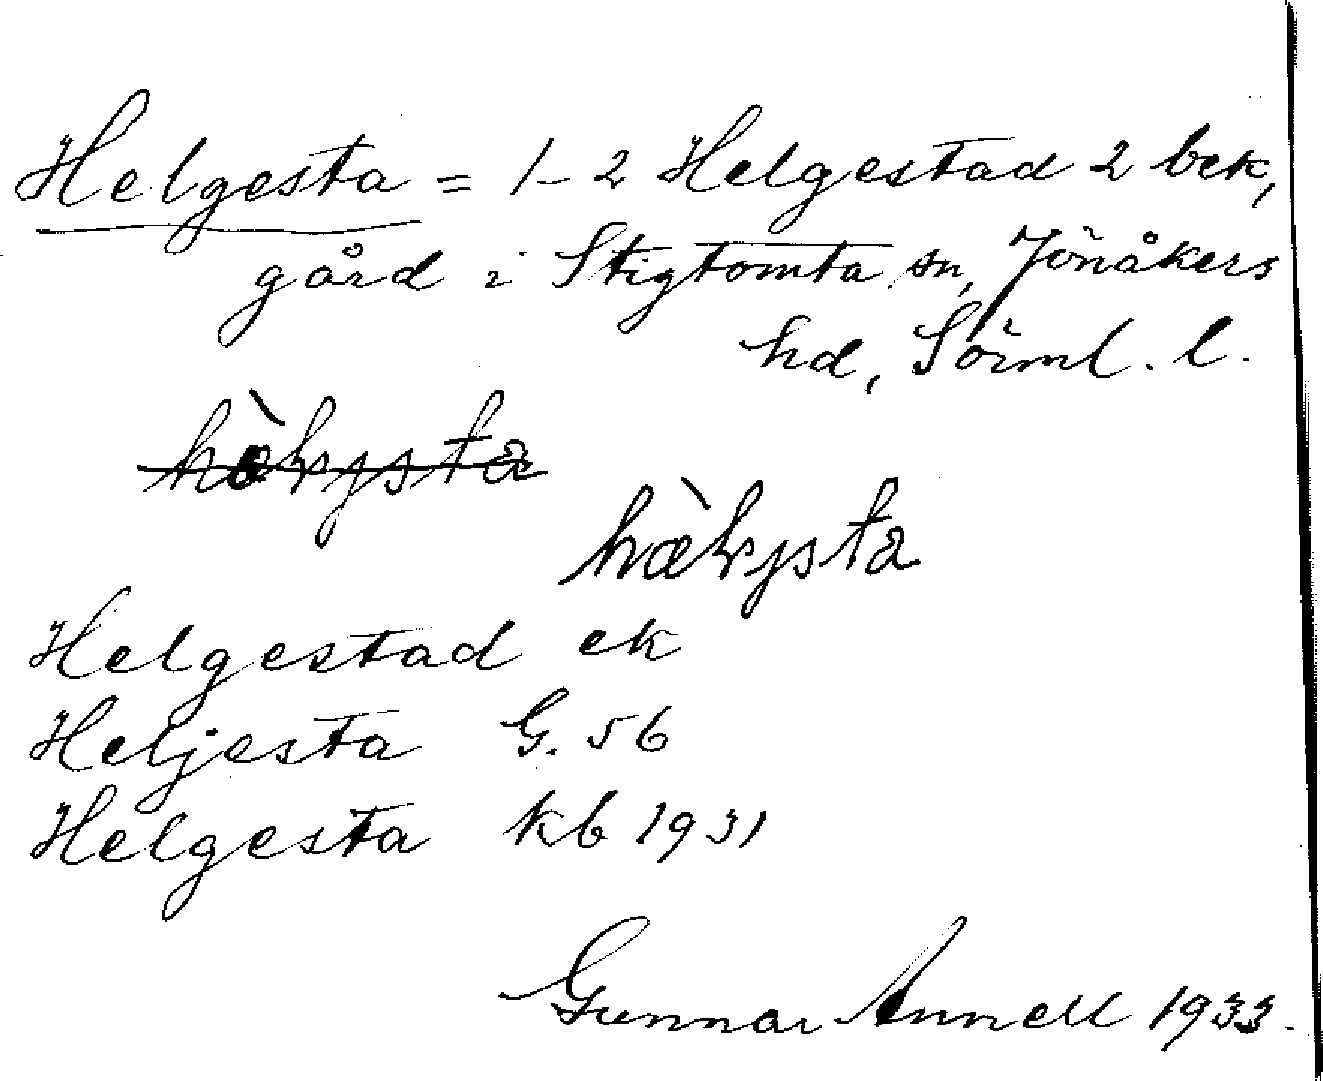 Helgesta = 1-2 Helgestad 2 bek,
gård i Stigtomta sn, Jönåkers
hd, Sörml. l.
hæ̀lysta
Helgestad ek
Heljesta G. 56
Helgesta kb 1931
Gunnar Annell 1933.